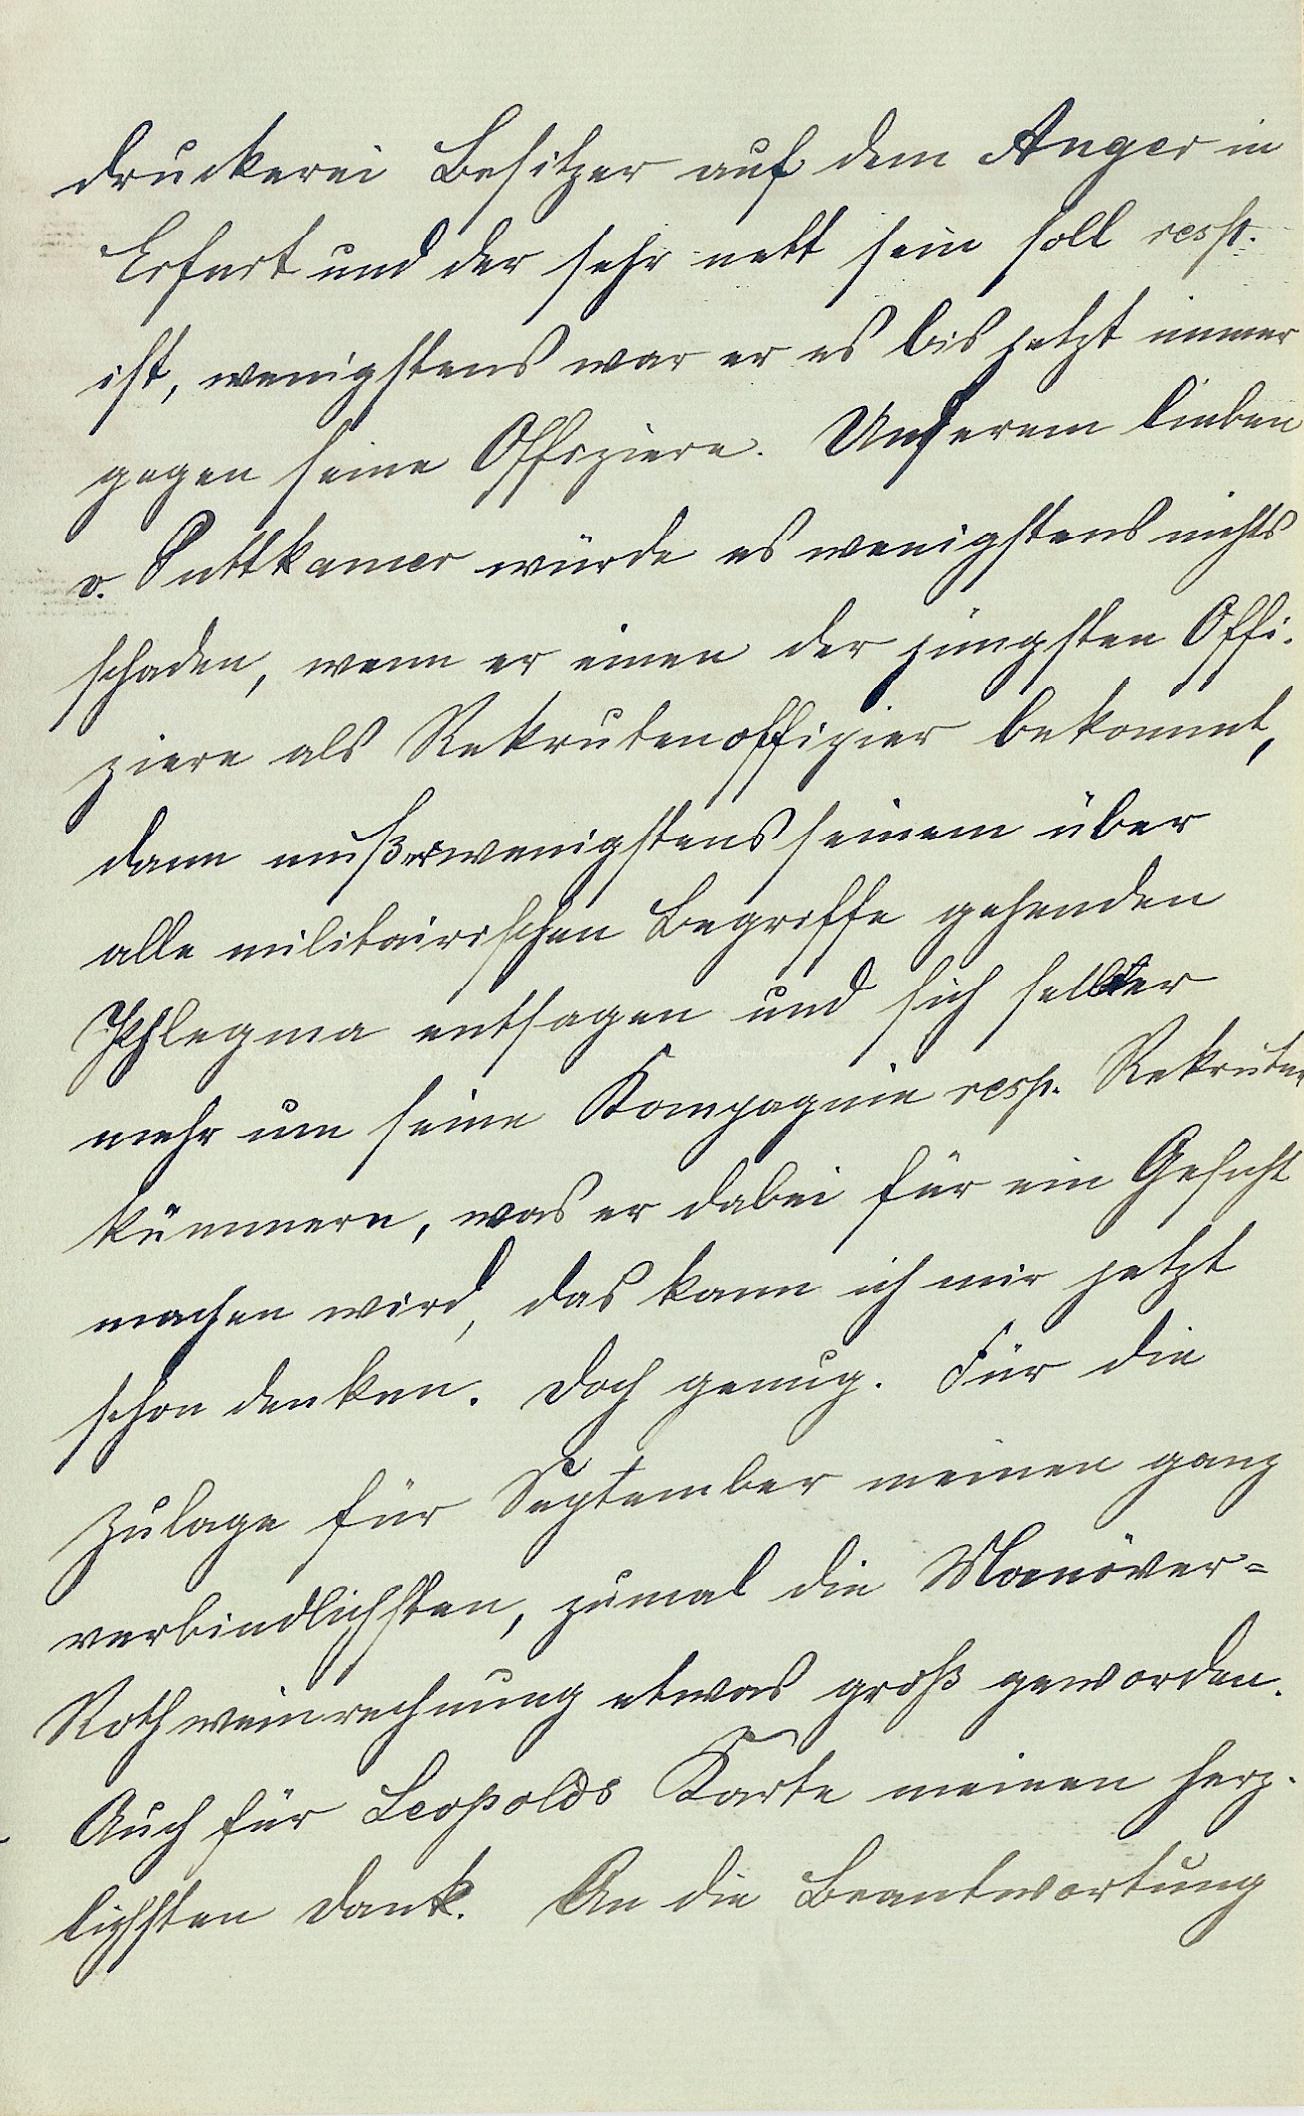 druckerei Besitzer auf dem Anger in
Erfurt und der sehr nett sein soll resp.
ist, wenigstens war er es bis jetzt immer
gegen seine Offiziere. Unserem lieben
v. Puttkamer würde es wenigstens nichts
schaden, wenn er einen der jüngsten Offi-
ziere als Rekrutenoffizier bekommt,
dann muß er wenigstens seinem über
alle militairischen Begriffe gehenden
Phlegma entsagen und sich selber
mehr um seine Kompagnie resp. Rekruten
kümmern, was er dabei für ein Gesicht
machen wird, das kann ich mir jetzt
schon denken. Doch genug. Für die
Zulage für September meinen ganz
verbindlichsten, zumal die Manöver=
Rothweinrechnung etwas groß geworden.
Auch für Leopolds Karte meinen herz-
lichsten Dank. An die Beantwortung